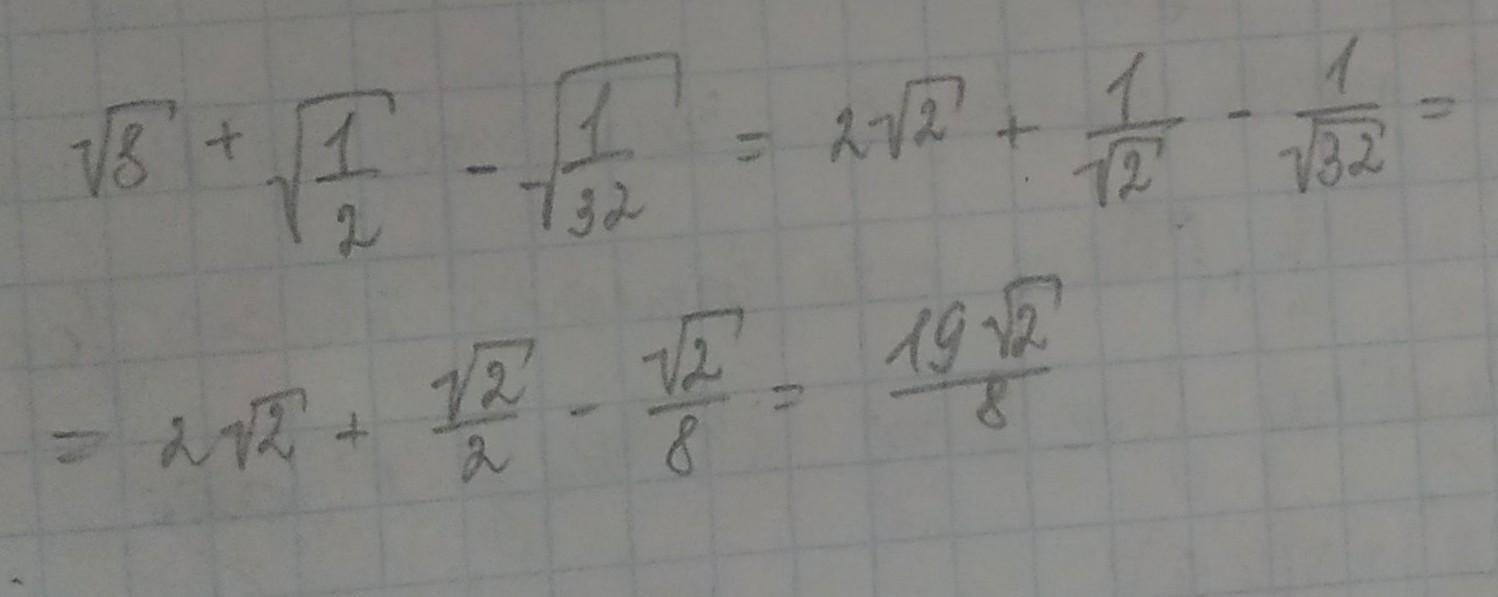 √8 + √(1/2) - √(1/32) = 2√2 + 1/√2 - 1/√32 =
= 2√2 + √2/2 - √2/8 = 19√2/8